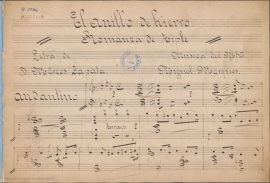 El anillo de hierro
Romanza de tiple
Letra de Música del Mtro
D. Marcos Zapata Miguel Marqués
Andantino